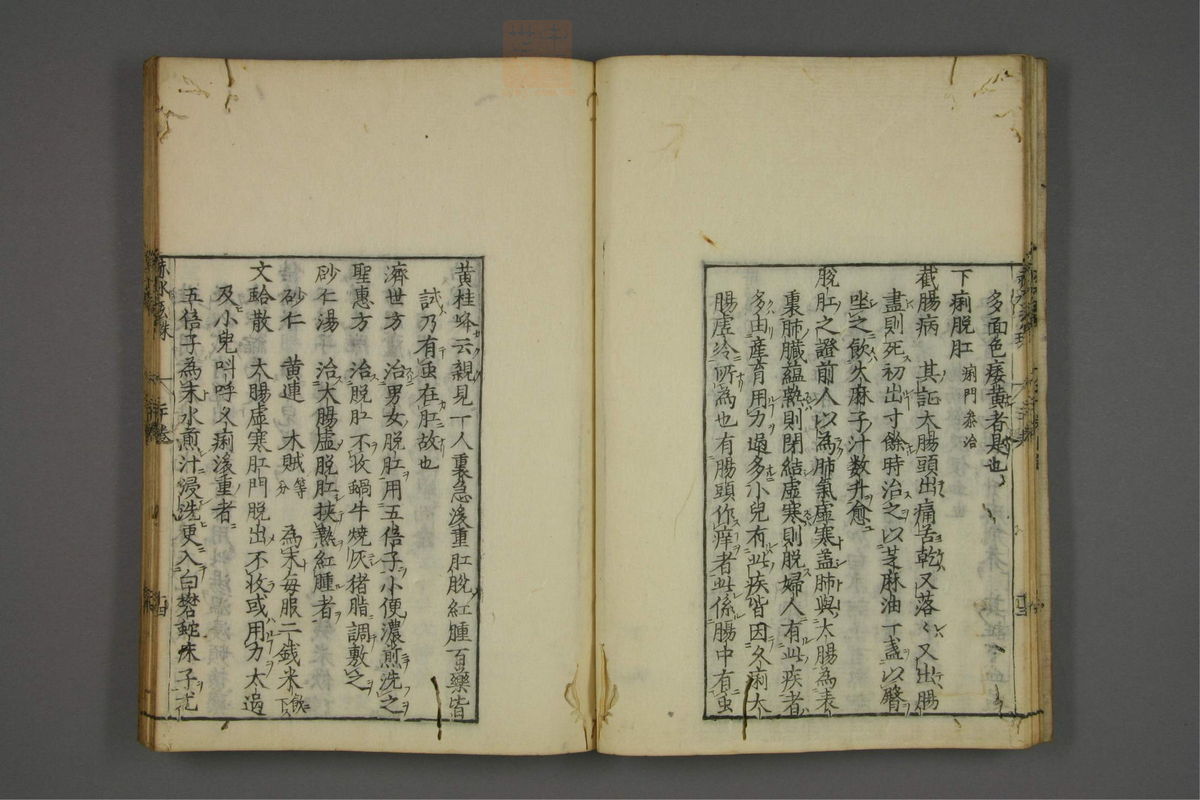 多面色痿黄者是也
下痢脱肛 痢門叅治
截腸病 其証大腸頭出痛苦乾又落〱又出腸
盡則死初出寸餘時治之以芝麻油一盞以臀
坐之飲火麻子汁数升愈
脱肛之證前人以為肺氣虚寒盖肺與大腸為表
裏肺臓蘊熱則閉結虚寒則脱婦人有此疾者
多由産育用力過多小兒有此疾皆因久痢大
腸虚冷所為也有腸頭作痒者此係腸中有虫
黄桂峰云親見一人裏急後重肛脱紅腫百藥皆
試乃有虫在肛故也
濟世方 治男女脱肛用五倍子小便濃煎洗之
聖惠方 治脱肛不收蝸牛燒灰猪脂調敷之
砂仁湯 治大腸虚脱肛挾熱紅腫者
砂仁 黄連 木賊等分 為末毎服二銭米飲下
文蛤散 大腸虚寒肛門脱出不收或用力太過
及小兒叫呼久痢後重者
五倍子為末水煎汁浸洗更入白礬蛇床子尤
赤水玄珠